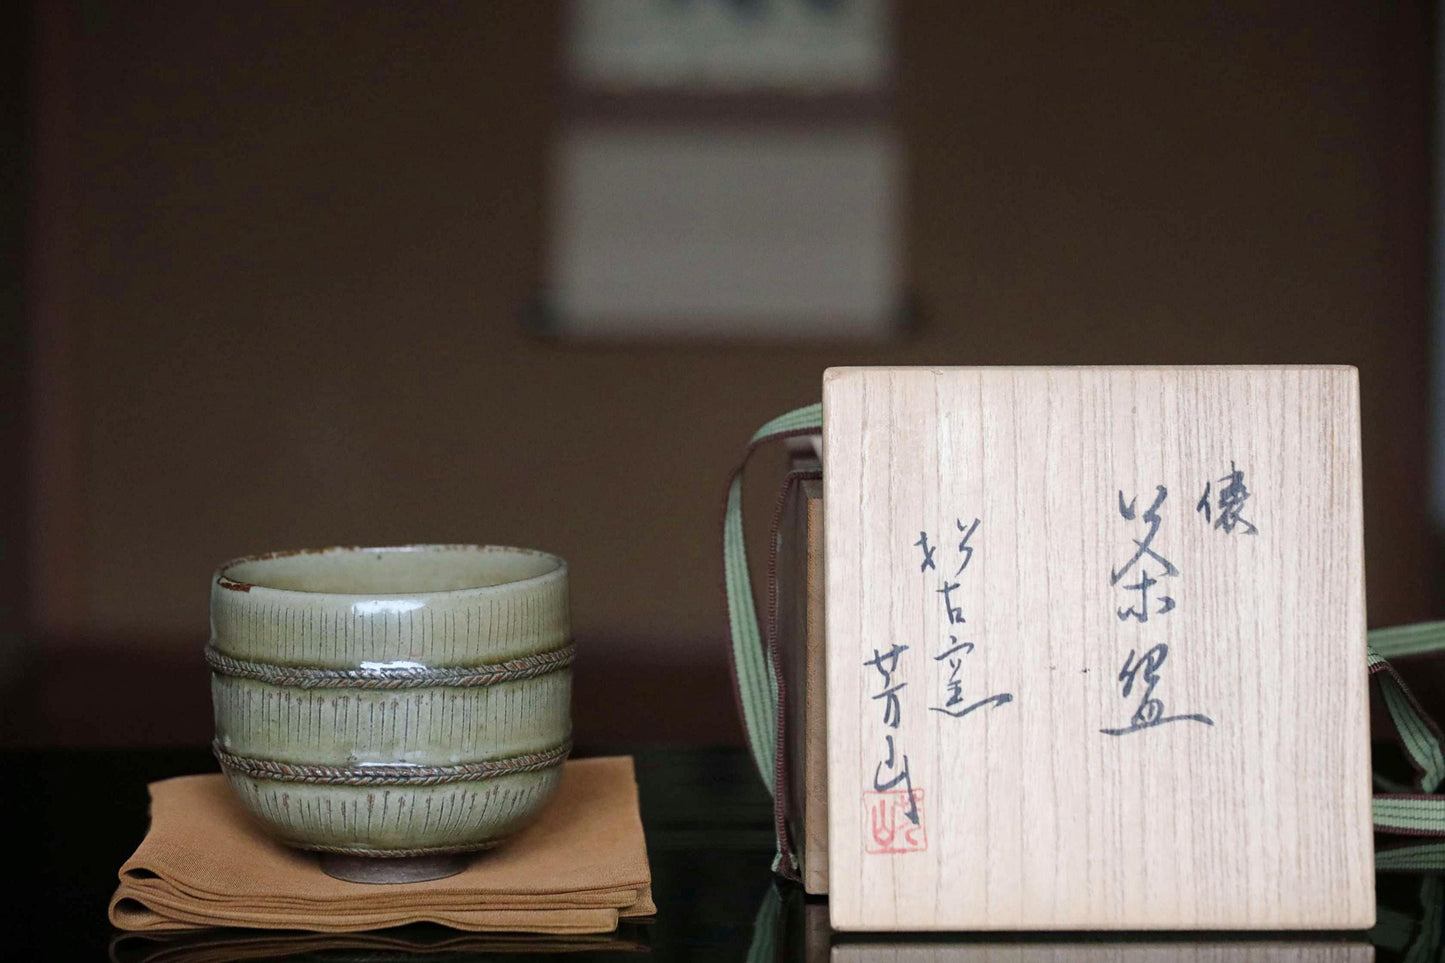 俵
茶盌
松古窯
芳山